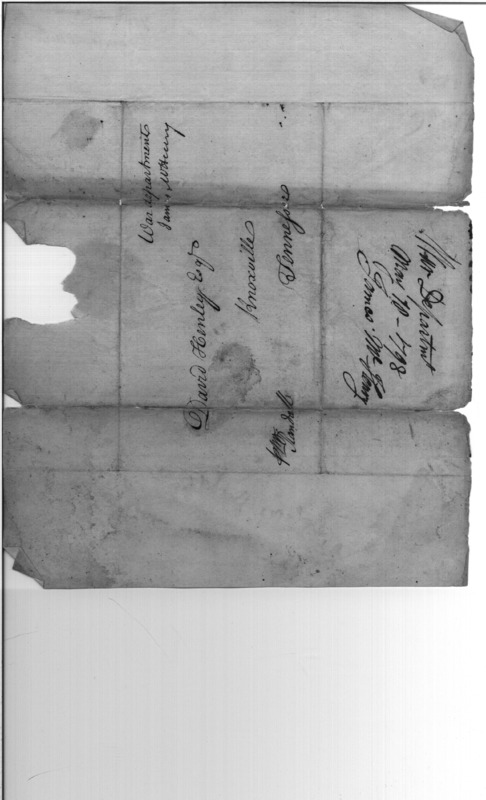 War department
James McHenry
David Henley Esqr
Knoxville
Tennessee
War Departmt
May 10 - 1798
James McHenry